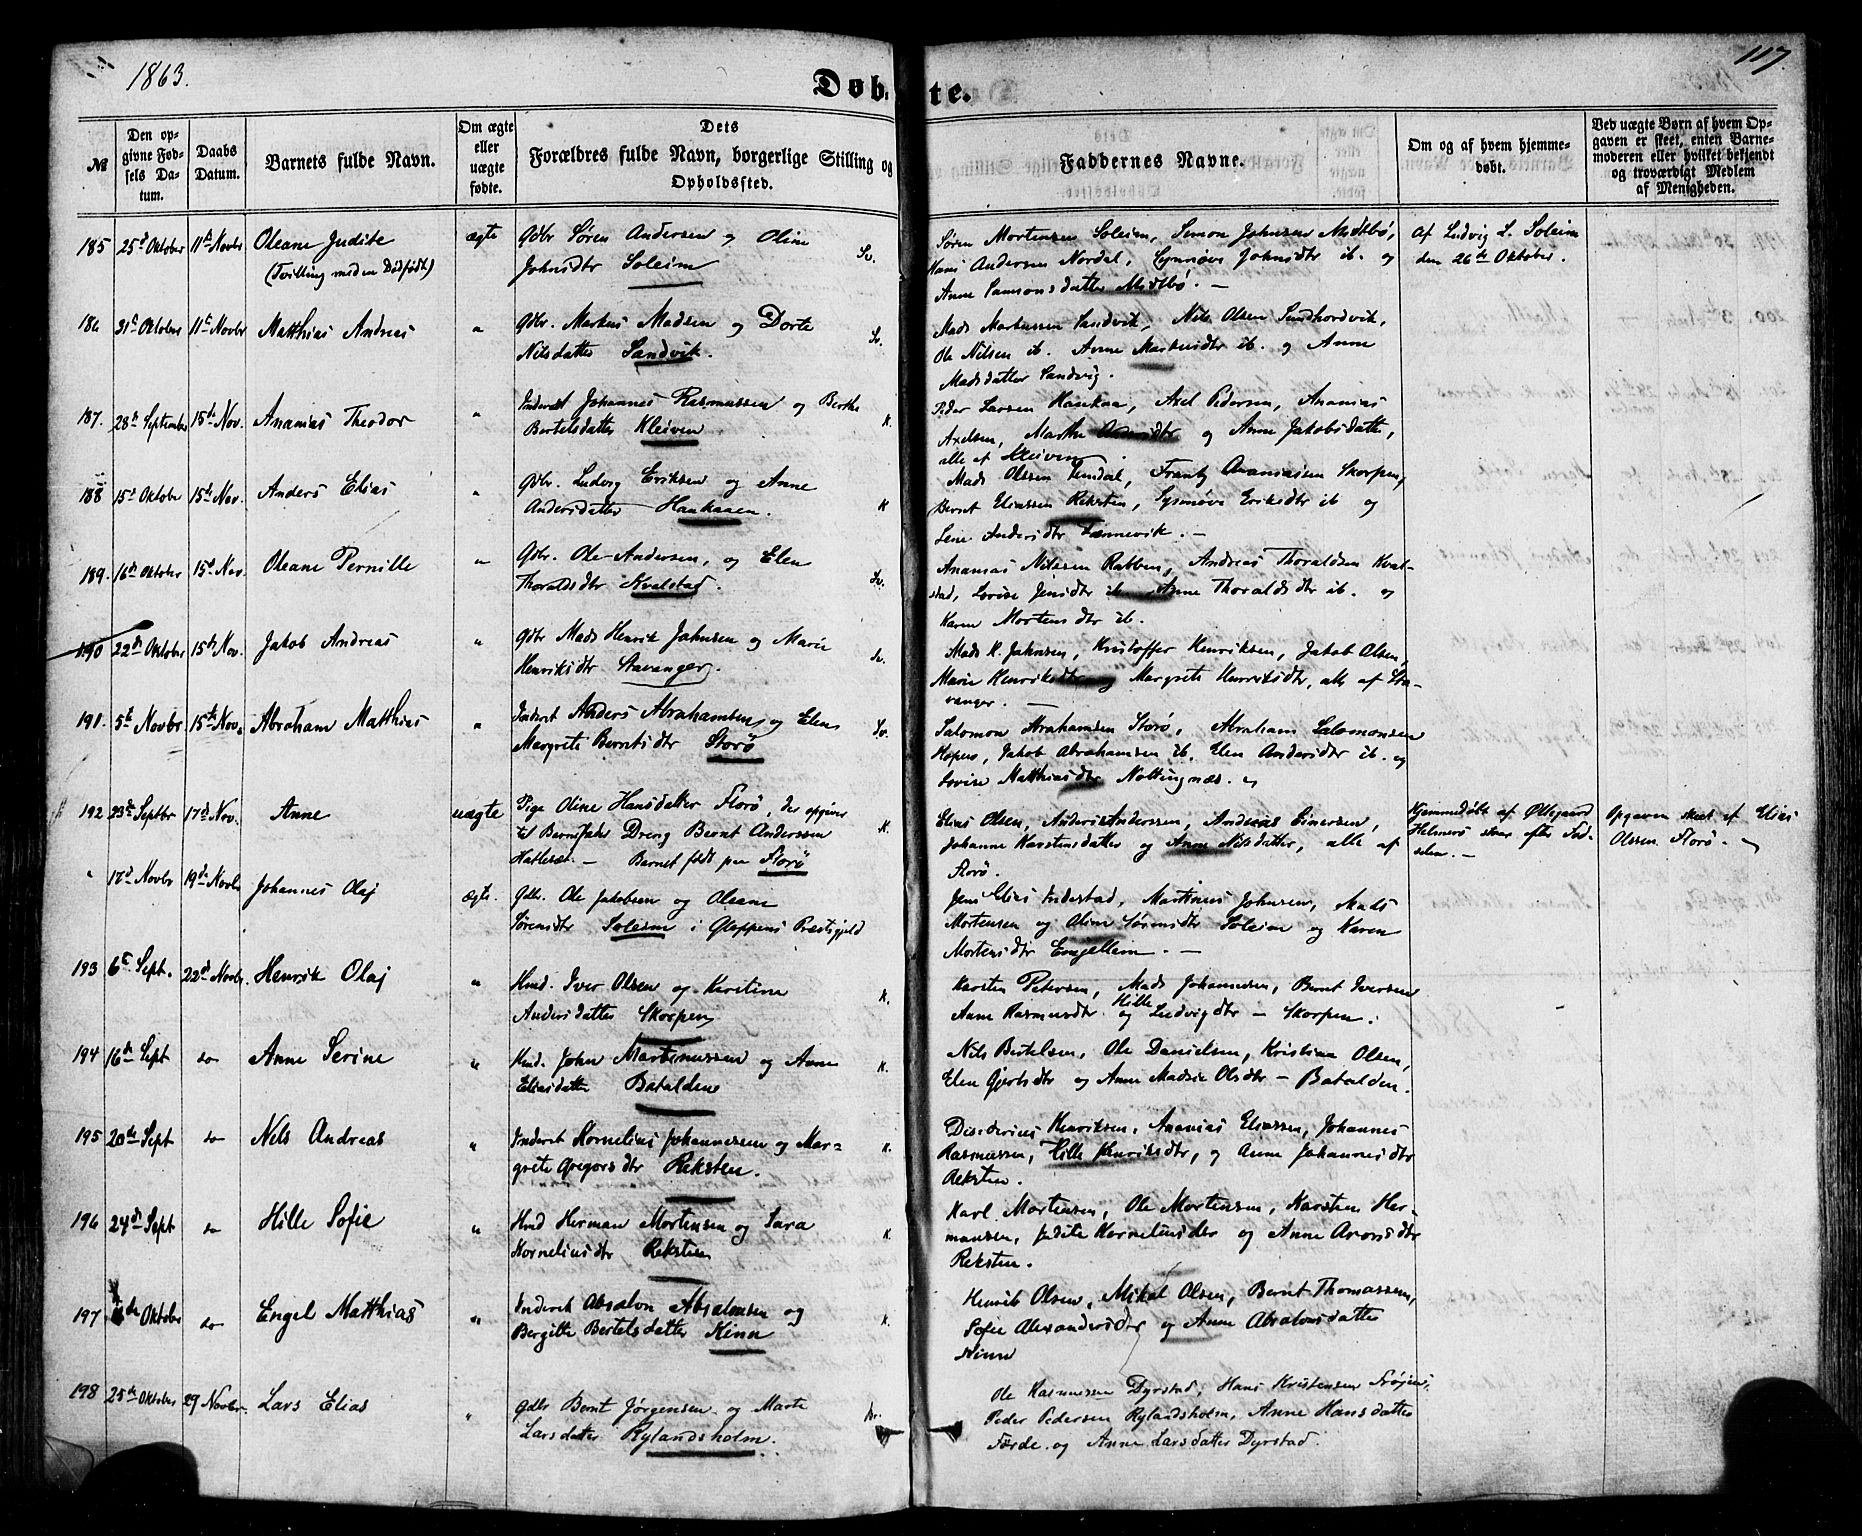 1863.
117.
Døbte.
№
Den opgivne Fødsels Datum.
Daabs Datum.
Barnets fulde Navn.
Om ægte eller uægte fødte.
Dets Forældres fulde Navn, borgerlige Stilling og Opholdssted.
Faddernes Navne.
Om og af hvem hjemmedøbt.
Ved uægte Børn af hvem Opgaven er skeet, enten Barnemoderen eller hvilket bekjendt og troværdigt Medlem af Menigheden.
185 25d Oktober 11te Novbr Oleane Judite ægte Gdbr Søren Andersen og Oline Sv.
(Tvilling med en Dødfødt) Johnsdtr Soleim
Søren Mortensen Soleim, Simon Johnsen Midtbø, Af Ludvig L. Soleim
Hans Andersen Nordal, Synnøve Johnsdtr ib. og den 26de Oktober.
Anne Samsonsdatter Midtbø. —
186 31te Oktober 11te Novbr Matthias Andreas " Gdbr. Markus Madsen og Dorte Sv.
Nilsdatter Sandvik.
Mads Markussen Sandvik, Nils Olsen Sundhordvik,
Ole Nilsen ib. Anne Markusdtr ib. og Anne
Madsdatter Sandvig.
187. 28de September 15de Nov. Ananias Theodor " Inderst Johannes Rasmussen og Berthe K.
Bertelsdatter Kleiven
Peder Larsen Haukaa, Axel Pedersen, Ananias
Axelsen, Marthe og Anne Jakobsdatter,
alle af Kleiven.
188 15d Oktober 15de Nov. Anders Elias " Gdbr. Ludvig Eriksen og Anne K
Andersdatter Haukaaen.
Mads Olssen Frantz Ananiasen Skorpen,
Bernt Eliassen Reksten, Synnøve Eriksdtr ib og
Lene Andersdtr
189. 16de Oktober 15d Nov. Oleane Pernille " Gdbr. Ole Andersen, og Elen Sv.
Thoraldsdtr Kvalstad.
Ananias Nilssen Rabben, Andreas Thoraldsen Kvalstad,
Lovise Jensdtr ib Anne Thoraldsdtr ib. og
Karen Mortensdtr ib.
190 22de Oktober 15de Nov. Jakob Andreas " Gdbr Mads Henrik Johnsen og Marie Sv.
Henriksdtr Stavanger.
Mads H. Johnsen, Kristoffer Henriksen, Jakob Olsen,
Marie Henriksdtr og Margrete Henriksdtr, alle af Stavanger. —
191. 5te Novbr 15de Nov. Abraham Matthias " Inderst Anders Abrahamsen og Elen Sv.
Margrete Berntsdtr Storø
Salomon Abrahamsen Storø, Abraham Salomonsen
Hopen, Jakob Abrahamsen ib. Elen Andersdtr ib. og
Lovise Matthiasdtr Nottingnæs.
192 23de Septbr 17d Nov. Anne uægte Pige Oline Hansdatter Florø, der opgiver K.
til Barnefader Dreng Bernt Anderssen
— Barnet født paa Florø
Elias Olsen, Anders Anderssen, Andreas Einersen, Hjemmedøbt af Ølegaard Opgaven skeet af Elias
Johanne Karstensdatter og Anne Nilsdatter, alle af Helmers strax efter Fødselen. — Olssen Florø.
Florø.
" 17d Novbr 19de Novbr Johannes Olaj ægte. Gdbr. Ole Jakobsen og Oleane
Sørensdtr Soleim i Gloppens Præstegjeld
Jens Elias Indestad, Martinus Johnsen, Mads
Mortensen og Oline Sørensdtr Soleim og Karen
Mortensdtr Engellem. —
193 6te Sept. 22d Novbr. Henrik Olaj " Hmd. Iver Olsen og Kirstine K.
Andersdatter Skorpen
Karsten Petersen, Mads Johannesen, Bernt Iversen
Anne Rasmusdtr. og Hille Ludvigsdtr — Skorpen.
194 16de Sept do Anne Serine " Hmd. John Martinussen og Anne K.
Eliasdatter Batalden
Nils Bertelsen, Ole Danielsen, Kristian Olsen,
Elen Gjertsdtr og Anne Madsie Olsdtr — Batalden.
195 20de Sept do Nels Andreas " Inderst Kornelius Johannessen og Margrete K.
Gregorsdtr Reksten.
Disiderius Henriksen, Ananias Eliassen, Johannes
Rasmussen, Hille Henriksdtr, og Anne Johannesdtr
Reksten.
196 24d Sept do Hille Sofie " Hmd Herman Mortensen og Sara K.
Korneliusdtr Reksten
Karl Mortensen, Ole Mortensen, Karsten Hermansen,
Judite Korneliusdtr og Anne Aronsdtr
Reksten.
197 Oktober do Engel Matthias " Inderst Absalon Absalonsen og K.
Bergitte Bertelsdatter Kinn
Henrik Olsen, Mikal Olsen, Bernt Thomassen,
Sofie Alexandersdtr og Anne Absalonsdatter
Kinn
198 25de Oktober 29 Novbr. Lars Elias " Gdbr Bernt Jørgensen og Marte Br.
Larsdatter Rylandsholm.
Ole Rasmussen Dyrstad, Hans Kristensen Frøjen,
Peder Pedersen Rylandsholm, Anne Hansdatter
Førde og Anne Larsdatter Dyrstad.